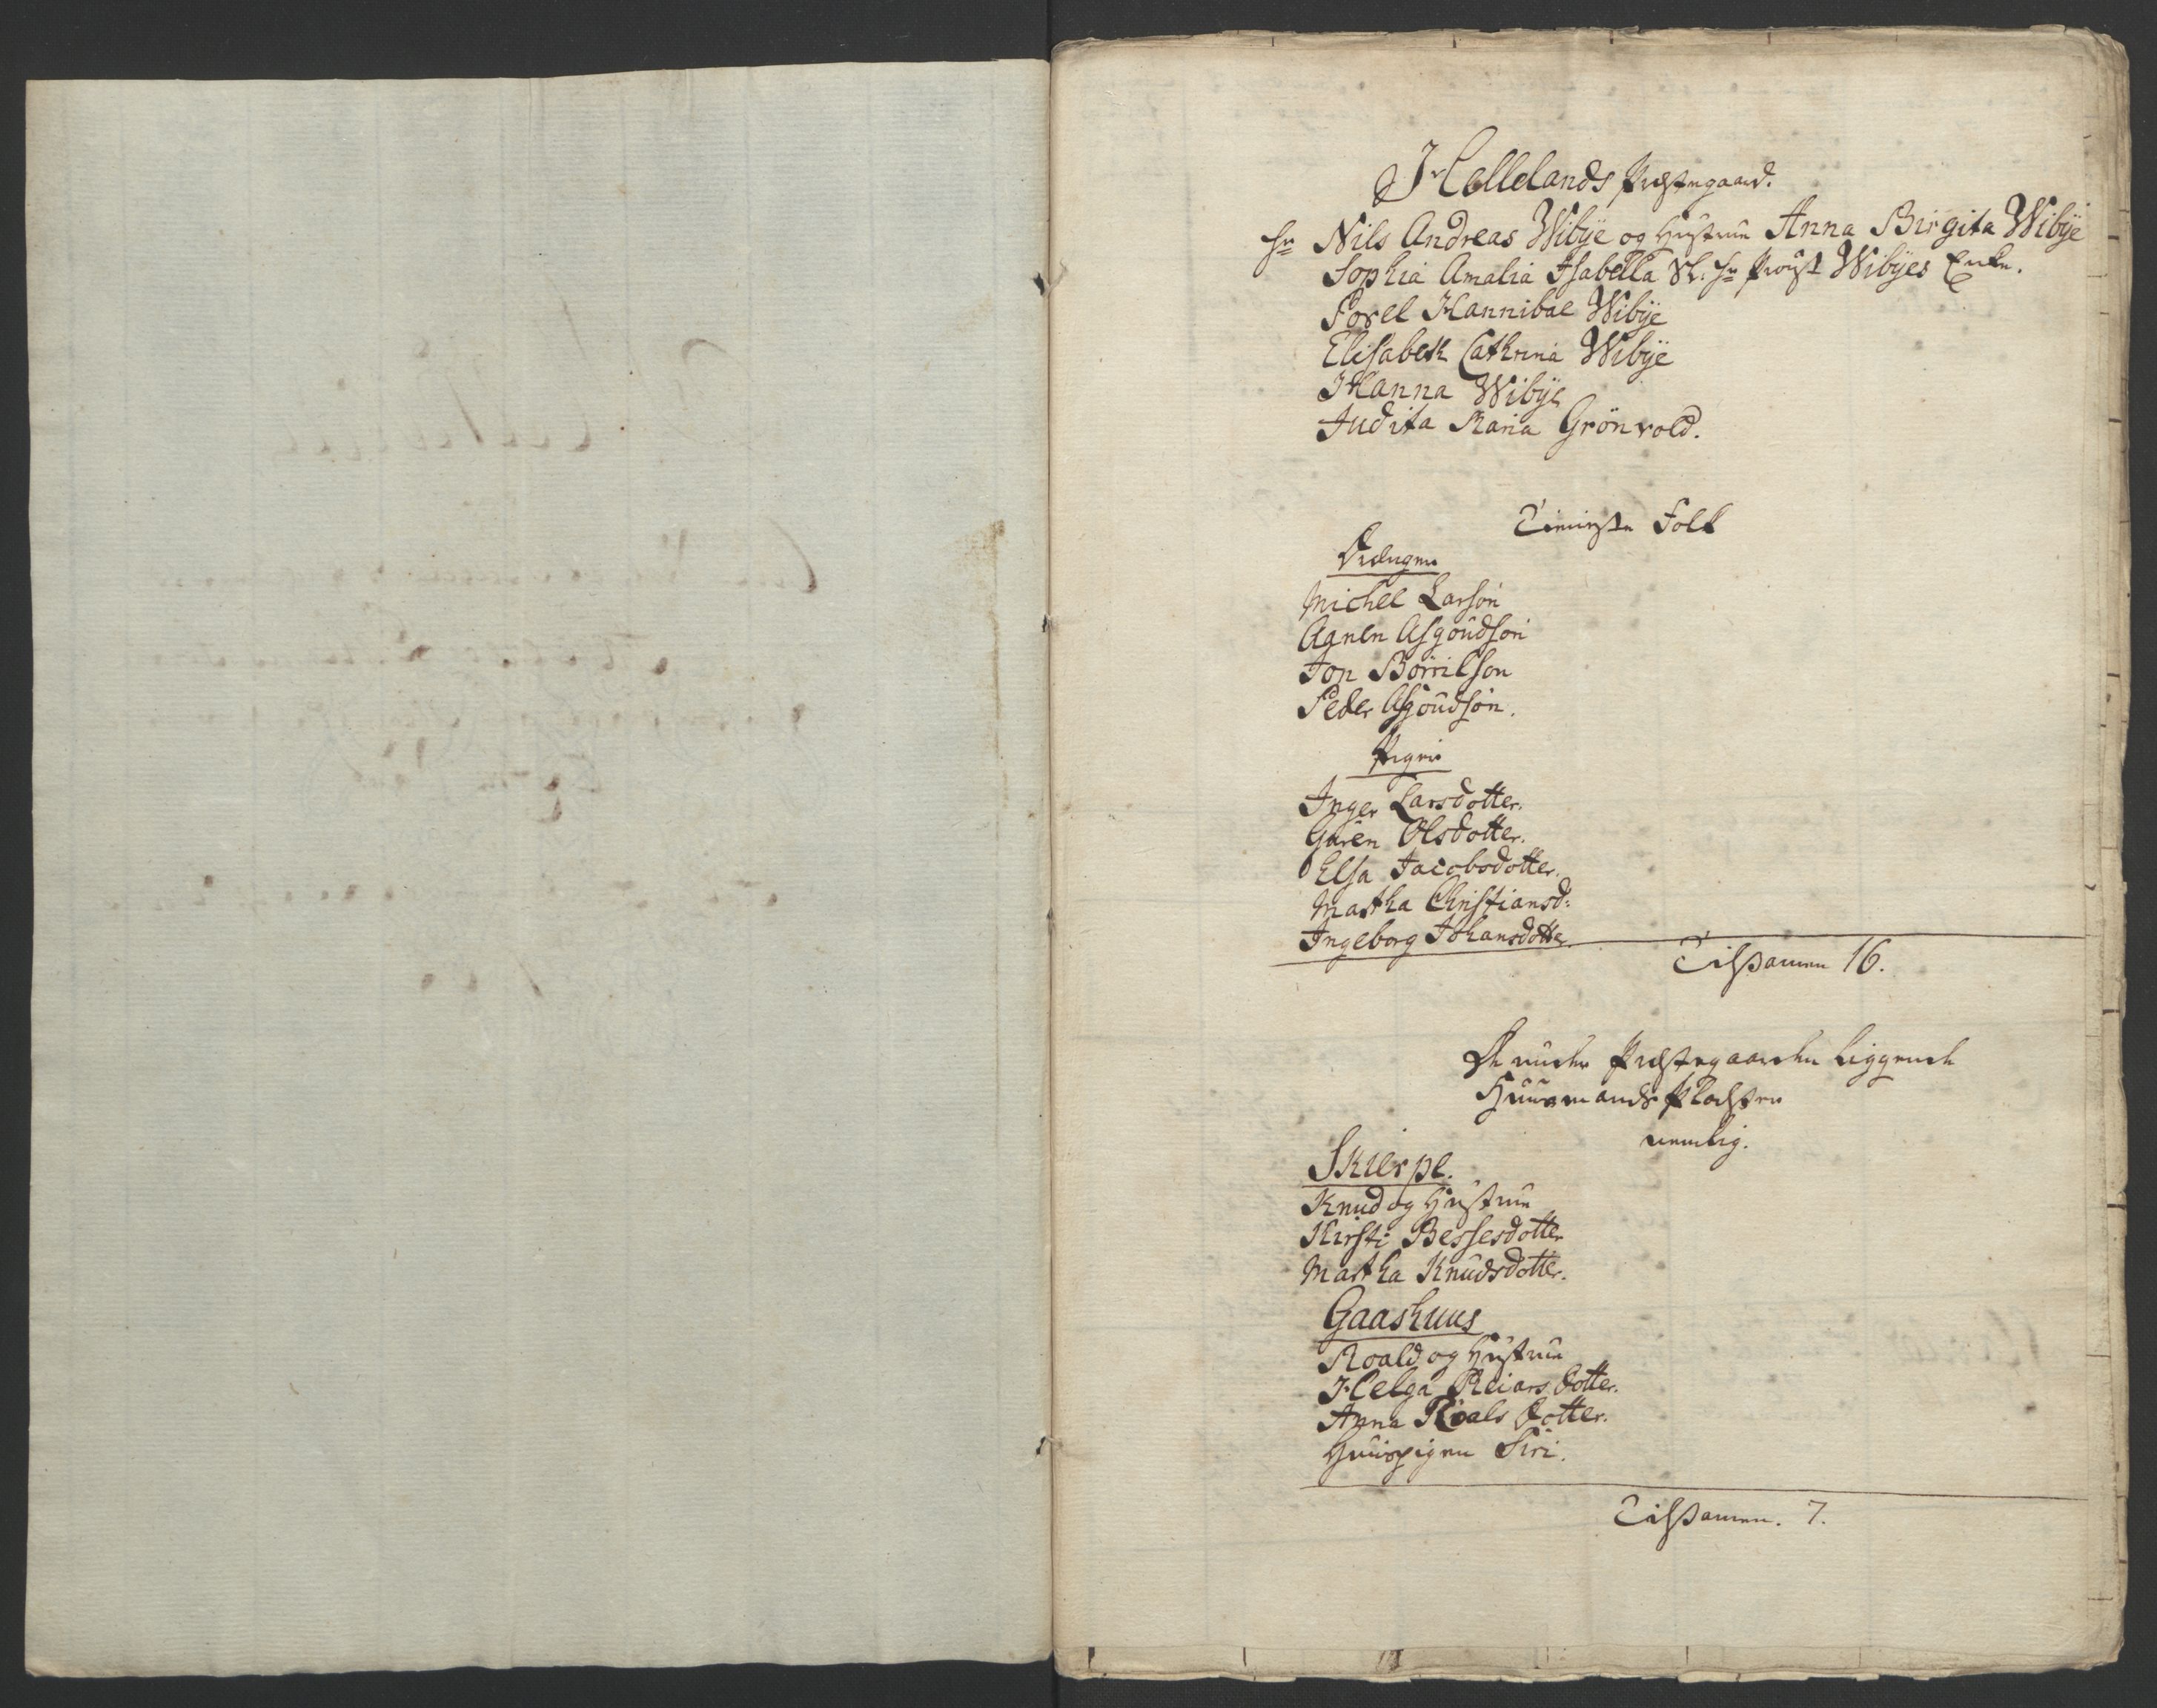 Hellelands Præstegaard.
Hr Nils Andreas Wibÿe og Hustrue Anna Birgita Wibÿe
Sophia Amalia Isabella Sl. Hr Provst Wibÿes Enke.
Povel Hannibal Wibÿe
Elisabeth Cathrina Wibÿe
Hanna Wibÿe
Judita Maria Grönvold.
Tieniste Folk
Drænger
Michel Larson
Agnen Asgoudson
Jon Börrilson
Peder Asgoudson.
Piger
Inger Larsdotter.
Guren Olsdotter.
Elsa Jacobsdotter.
Martha Christiansd:
Ingeborg Johansdotter
Tilsamen 16.
De under Præstegaarden liggende
Huusmands Pladster
nemlig.
Skierpe.
Knud og Hustrue
Kirsti Bessesdotter
Martha Knudsdotter.
Gaashuus
Roald og Hustrue
Helga Reiars Dotter.
Anna Roals Dotter.
Huuspigen Siri.
Tilsamen. 7.